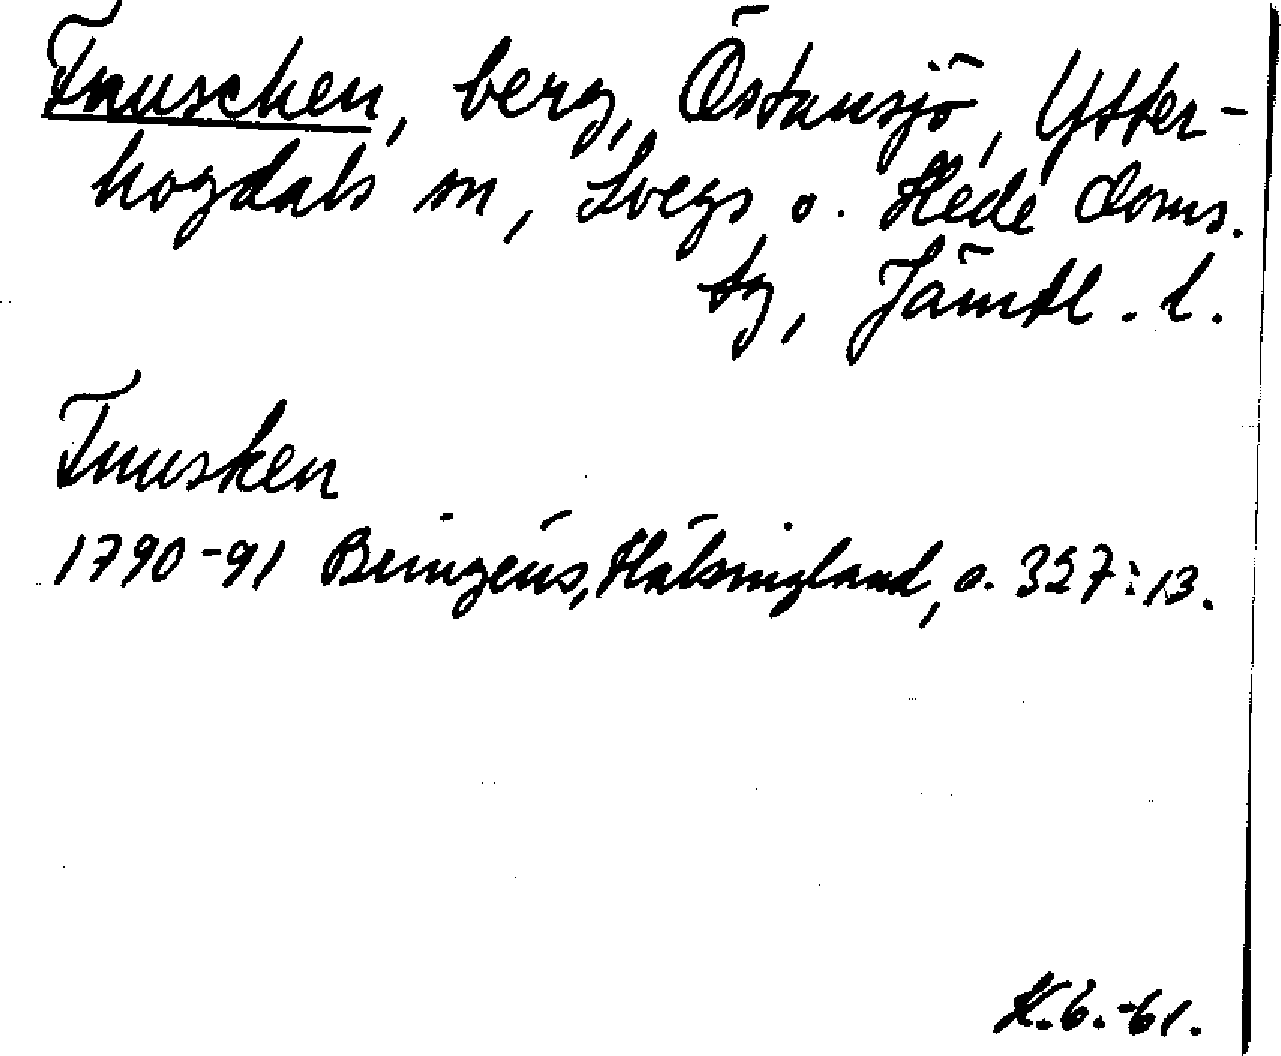 Fnuschen, berg, Östansjö, Ytter-
hogdals sn, Svegs o. Hede doms.
tg, Jämtl. l.
Fnusken
1790-91 Bringéus, Hälsingland, s. 327:13.
H.G.-61.